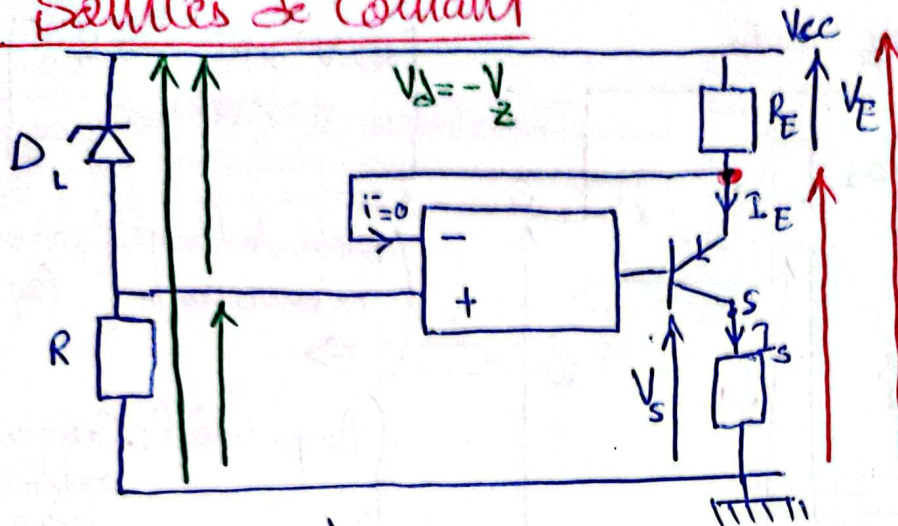 Sources de Courant
Vcc
Vd = -Vz
RE
VE
D
i⁻=0
IE
-
+
R
S
Is
Vs